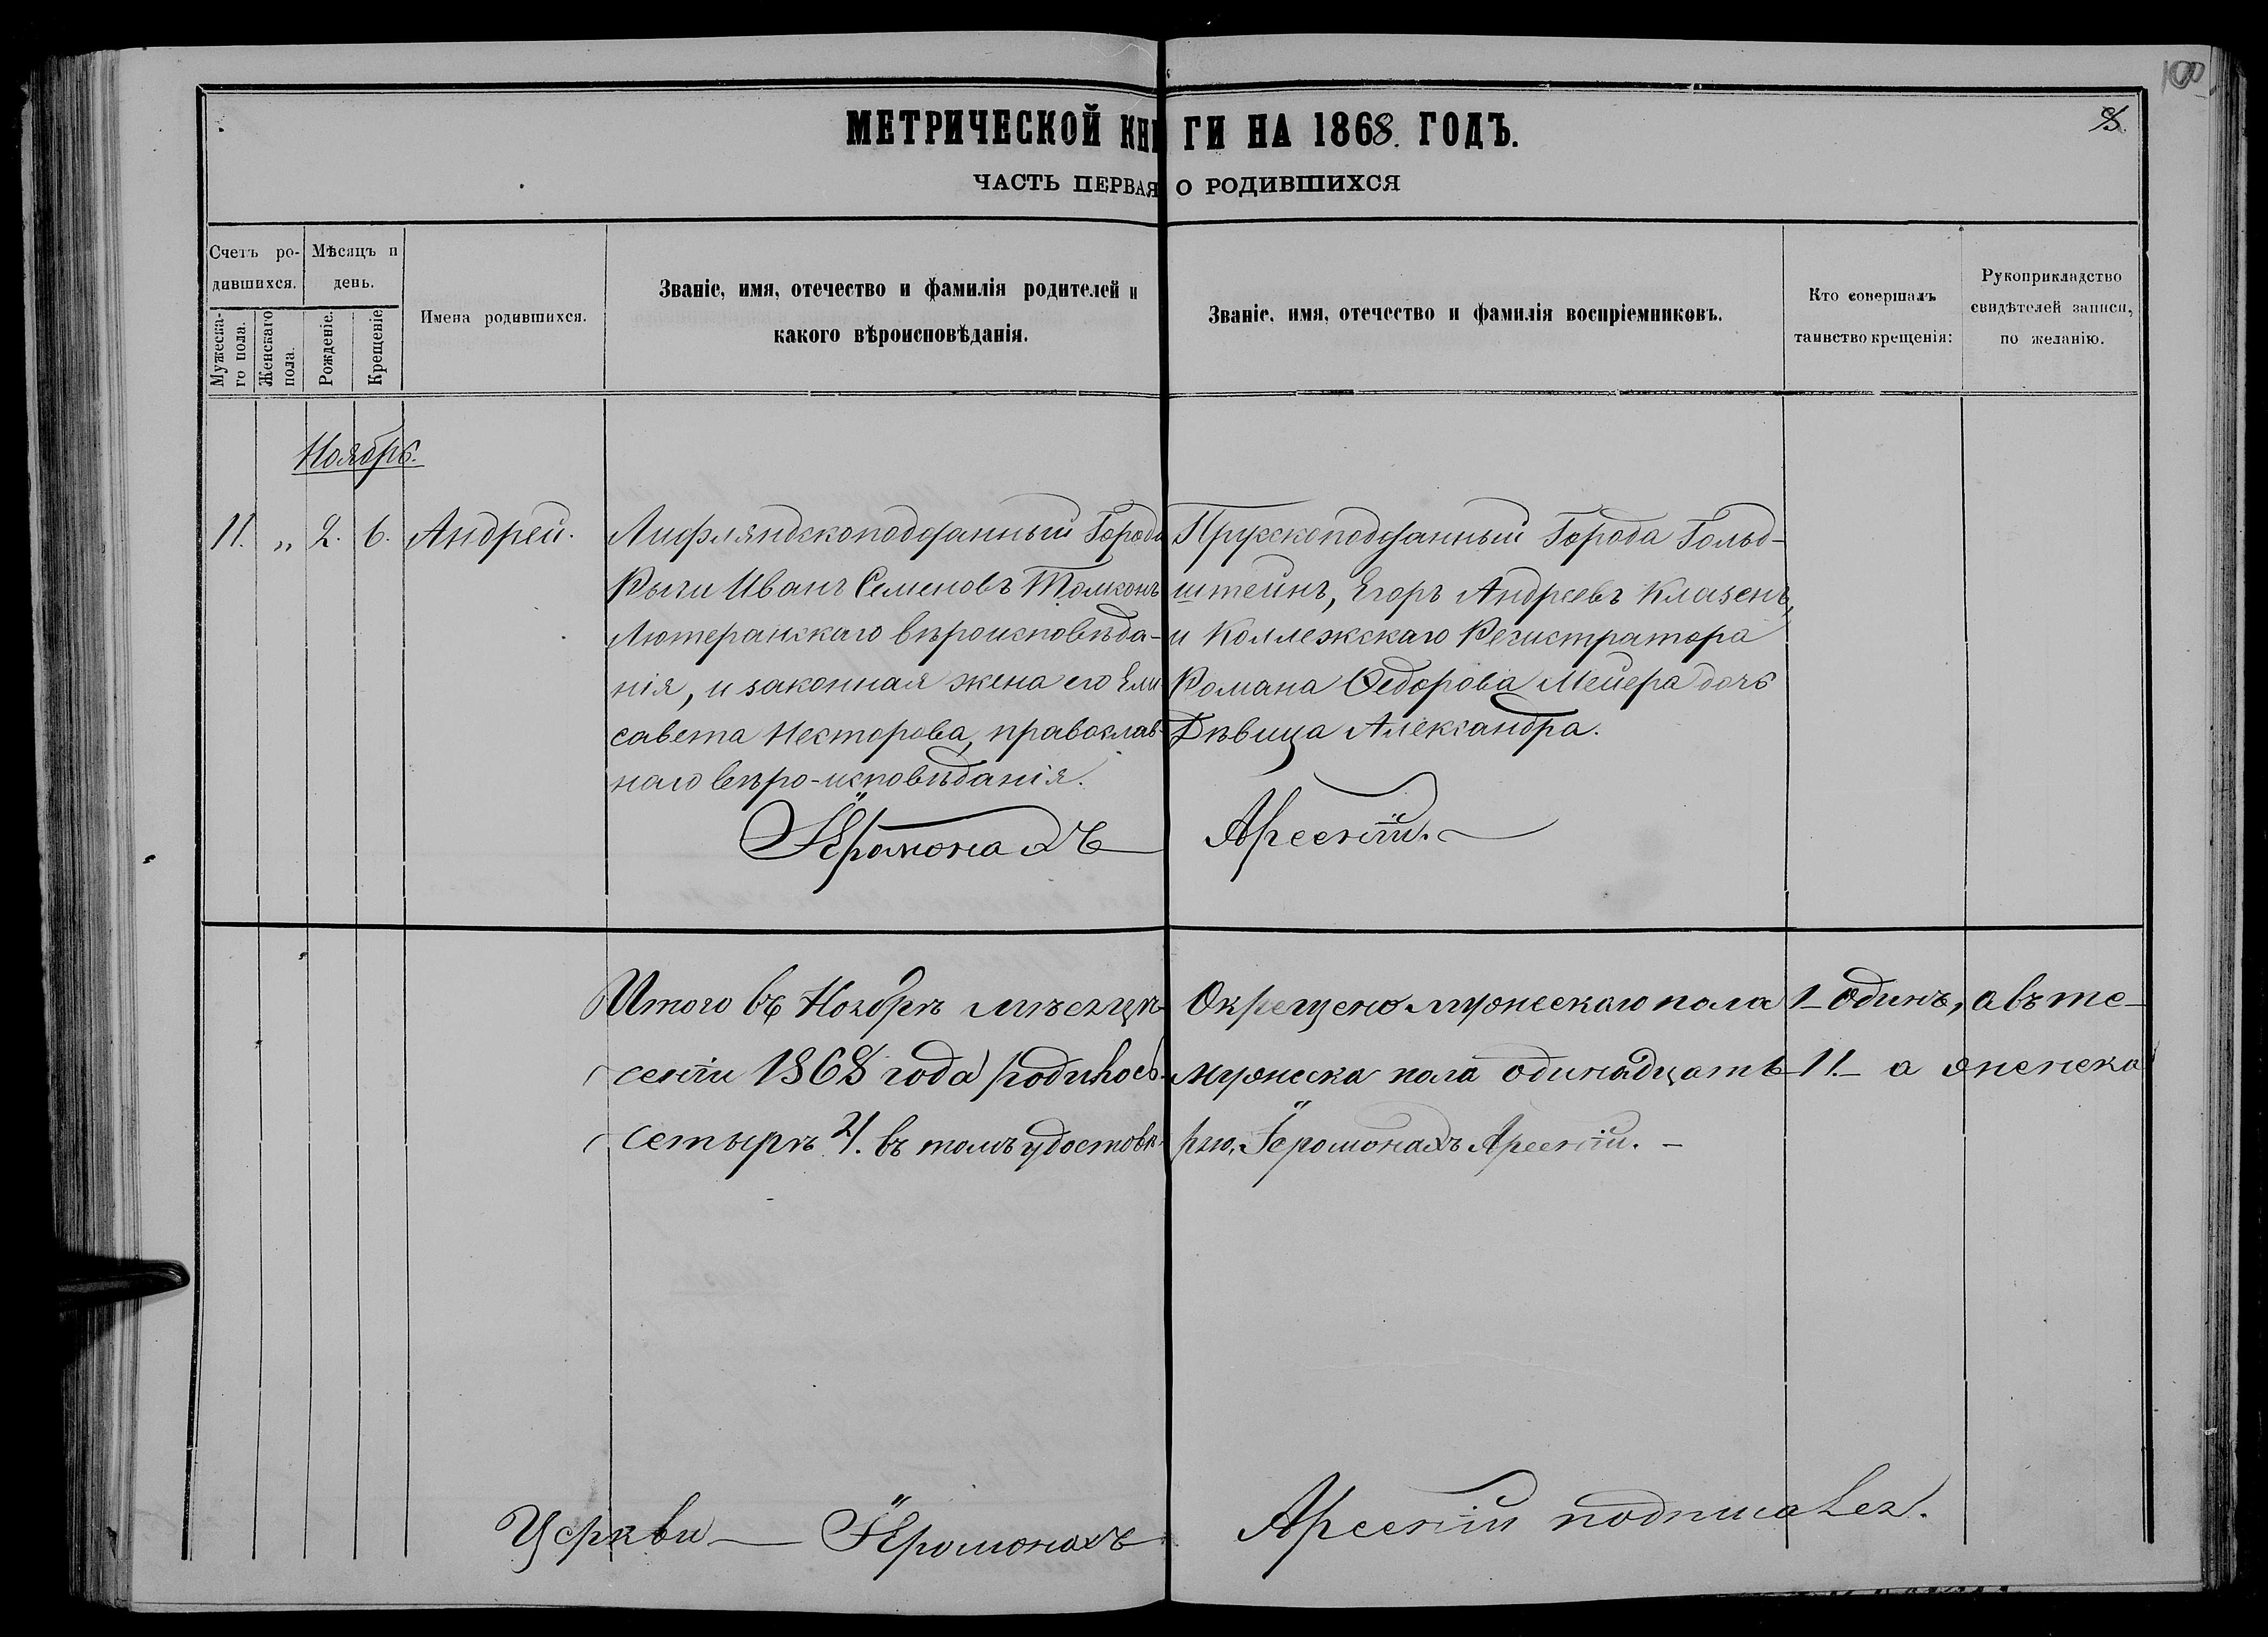 100
8.
МЕТРИЧЕСКОЙ КНИГИ НА 1868. ГОДЪ.
ЧАСТЬ ПЕРВАЯ О РОДИВШИХСЯ
Счетъ ро-
дившихся.
Мужеска-
го пола.
Женскаго
пола.
Мѣсяцъ и
день.
Рожденіе.
Крещеніе
Имена родившихся.
Званіе, имя, отечество и фамилія родителей и
какого вѣроисповѣданія.
Званіе, имя, отечество и фамилія воспріемниковъ.
Кто совершалъ
таинство крещенія:
Рукоприкладство
свидѣтелей записи,
по желанію.
Ноябрь.
11. „ 2. 6. Андрей.
Лифляндскоподданный Города
Риги Иванъ Семеновъ Томсонъ
Лютеранскаго вѣроисповѣда-
нія, и законная жена его Ели
савета Несторова, православ-
наго вѣро-исповѣданія.
Прускоподданный Города Гольд-
штейнъ, Егоръ Андреевъ Клазенъ,
и Коллежскаго Регистратора
Романа Ѳедорова Мейера дочь
Дѣвица Александра.
Іеромонахъ Арсеній.
Итого въ Ноябрѣ мѣсяцѣ Окрещено мужескаго пола 1 одинъ, а въ те-
ченіи 1868 года родилось мужеска пола одинадцать 11. а женска
четырѣ 4. въ томъ удостовѣряю, Іеромонахъ Арсеній.
Церкви Іеромонахъ Арсеній подписался.